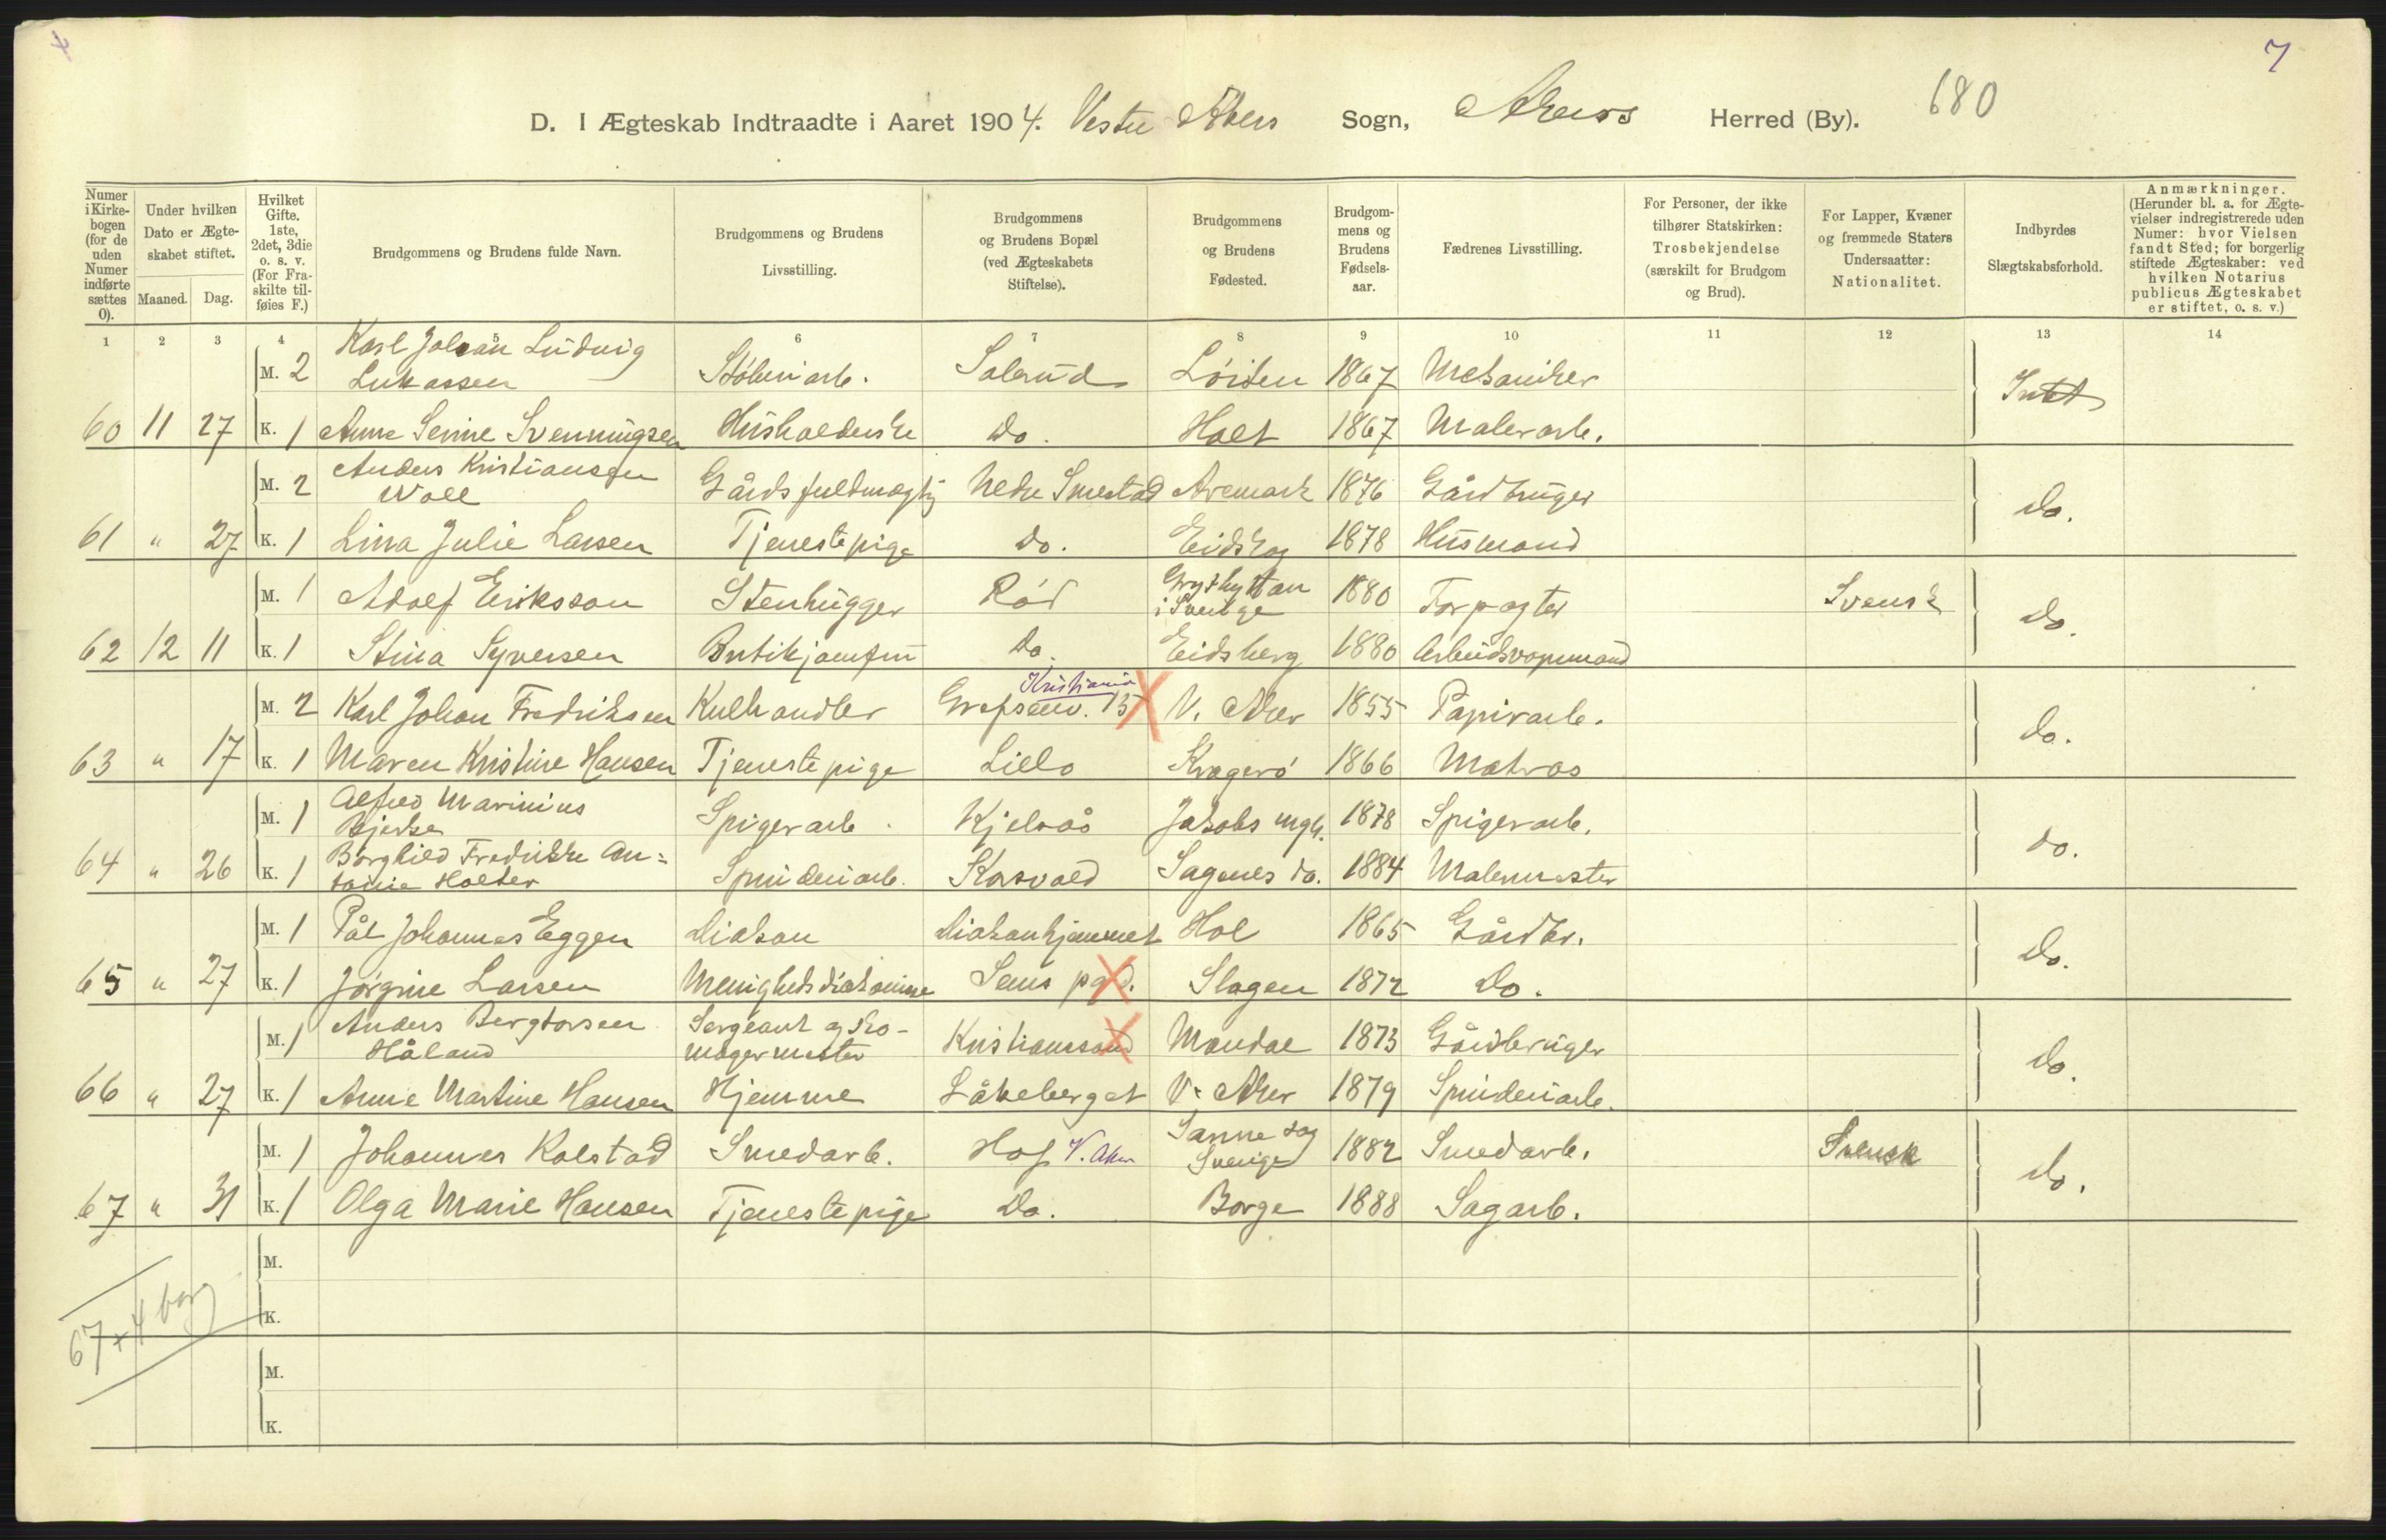 7
D. I Ægteskab Indtraadte i Aaret 1904. Vestre Akers Sogn, Akers Herred (By). 680
Numer i Kirkebogen (for de uden Numer indførte sættes 0).
Under hvilken Dato er Ægteskabet stiftet.
Maaned. Dag.
Hvilket Gifte. 1ste, 2det, 3die o. s. v. (For Fraskilte tilføies F.)
Brudgommens og Brudens fulde Navn.
Brudgommens og Brudens Livsstilling.
Brudgommens og Brudens Bopæl (ved Ægteskabets Stiftelse).
Brudgommens og Brudens Fødested.
Brudgommens og Brudens Fødselsaar.
Fædrenes Livsstilling.
For Personer, der ikke tilhører Statskirken: Trosbekjendelse (særskilt for Brudgom og Brud).
For Lapper, Kvæner og fremmede Staters Undersaatter: Nationalitet.
Indbyrdes Slægtskabsforhold.
Anmærkninger. (Herunder bl. a. for Ægtevielser indregistrerede uden Numer: hvor Vielsen fandt Sted; for borgerlig stiftede Ægteskaber: ved hvilken Notarius publicus Ægteskabet er stiftet, o. s. v.)
1 2 3 4 5 6 7 8 9 10 11 12 13 14
M. 2 Karl Johan Ludvig Lukassen Støberiarb. Løiten 1867 Mekaniker Intet
60 11 27 K. 1 Anne Serine Svenningsen Husholderske Do. Holt 1867 Malerarb.
M. 2 Anders Kristiansen Woll Gårdsfuldmægtig Nedre Smestad Aremark 1876 Gårdbruger Do.
61 " 27 K. 1 Lina Julie Larsen Tjenestepige Do. Eidskog 1878 Husmand
M. 1 Adolf Eriksson Stenhugger Rød Grythyttan i Sverige 1880 Torpagter Svensk Do.
62 12 11 K. 1 Stina Syversen Butikjomfru Do. Eidsberg 1880 Arbeidsformand
M. 2 Karl Johan Fredriksen Kulhandler Grefsenv. 15 Kristiania V. Aker 1855 Papirarb. Do.
63 " 17 K. 1 Maren Kristine Hansen Tjenestepige Lillo Kragerø 1866 Matros
M. 1 Alfred Marinius Bjerke Spigerarb. Kjelsås Jakobs mgh. 1878 Spigerarb. Do.
64 " 26 K. 1 Borghild Fredrikke Antonie Holter Spinderiarb. Korsvold Sagenes do. 1884 Malermester
M. 1 Pål Johannes Eggen Diakon Diakonhjemmet Hol 1865 Gårdbr. Do.
65 " 27 K. 1 Jørgine Larsen Menighedsdiakonisse Sems pgd. Slagen 1872 Do.
M. 1 Anders Bergtorsen Håland Sergeant og skomagermester Kristianssand Mandal 1873 Gårdbruger Do.
66 " 27 K. 1 Anne Martine Hansen Hjemme Låkeberget V. Aker 1879 Spinderiarb.
M. 1 Johannes Kolstad Smedarb. Hof V. Aker Sanne sog Sverige 1882 Smedarb. Svensk Do.
67 " 31 K. 1 Olga Marie Hansen Tjenestepige Do. Borge 1888 Sagarb.
M.
K.
67 + 4 borg
M.
K.